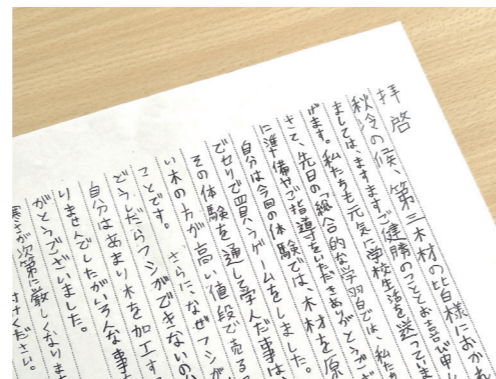 拝啓
秋冷の候、第三木材の皆様におかれ
ましては、ますますご健勝のこととお喜び申し
げます。私たちも元気に学校生活を送っていま
さて、先日の「総合的な学習」では、私たち
に準備やご指導をいただきありがとうござ
自分は今回の体験では、木材を原
でセリで買うゲームをしました。
その体験を通し学んだ事は、
い木の方が高い値段で売る
ことです。さらに、なぜフシが
どうしたらフシができないの
自分はあまり木を加工す
りませんでしたがいろんな事
がとうございました。
寒さが次第に厳しくなりま
ください。